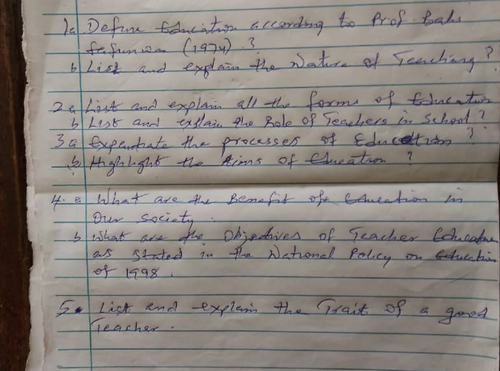 1a Define Education according to Prof Babs
Fafunwa (1974)?
b List and explain the Nature of Teaching?
2a List and explain all the forms of Education
b List and explain the Role of Teachers in School?
3a Expentiate the processes of Education?
b Highlight the Aims of Education?
4.a What are the Benefit of Education in
Our Society.
b What are the Objectives of Teacher Education
as stated in the National Policy on Education
of 1998.
5. List and explain the Trait of a good
Teacher.